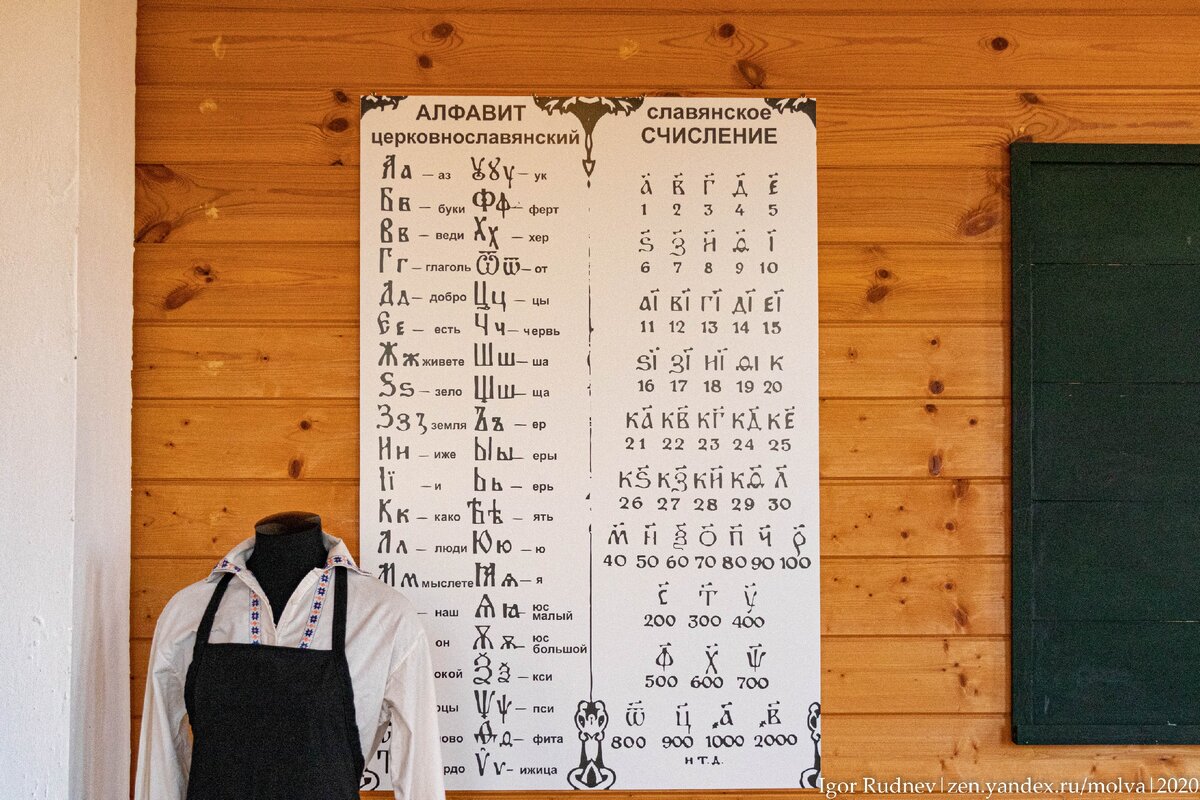 АЛФАВИТ
церковнославянский
Аа – аз
Бв – буки
Вв – веди
Гг – глаголь
Дд – добро
Єе – есть
Жж живете
Ѕѕ – зело
Ззꙁ земля
Ин – иже
Її – и
Кк – како
Лл – люди
Мм мыслете
– наш
он
окой
рцы
ово
Т рдо
Ѹꙋу – ук
Фф – ферт
Хх – хер
Ѿѿ – от
Цц – цы
Чч – червь
Шш – ша
Щщ – ща
Ъъ – ер
Ыы – еры
Ьь – ерь
Ѣѣ – ять
Юю – ю
Ꙗѧ – я
Ѧꙗ – юс малый
Ѫѫ – юс большой
Ѯѯ – кси
Ѱѱ – пси
Ѳд – фита
Ѷѵ – ижица
славянское
СЧИСЛЕНИЕ
а҃ в҃ г҃ д҃ е҃
1 2 3 4 5
ѕ҃ з҃ и҃ ѳ҃ і҃
6 7 8 9 10
аі҃ ві҃ гі҃ ді҃ еі҃
11 12 13 14 15
ѕі҃ зі҃ иі҃ ѳі к
16 17 18 19 20
ка҃ кв҃ кг҃ кд҃ ке҃
21 22 23 24 25
кѕ҃ кз҃ ки҃ кѳ҃ л҃
26 27 28 29 30
м҃ н҃ ѯ҃ о҃ п҃ ч҃ р҃
40 50 60 70 80 90 100
с҃ т҃ у҃
200 300 400
ф҃ х҃ ѱ҃
500 600 700
ѿ ц҃ ҂а҃ ҂в҃
800 900 1000 2000
и т.д.
Igor Rudnev | zen.yandex.ru/molva | 2020